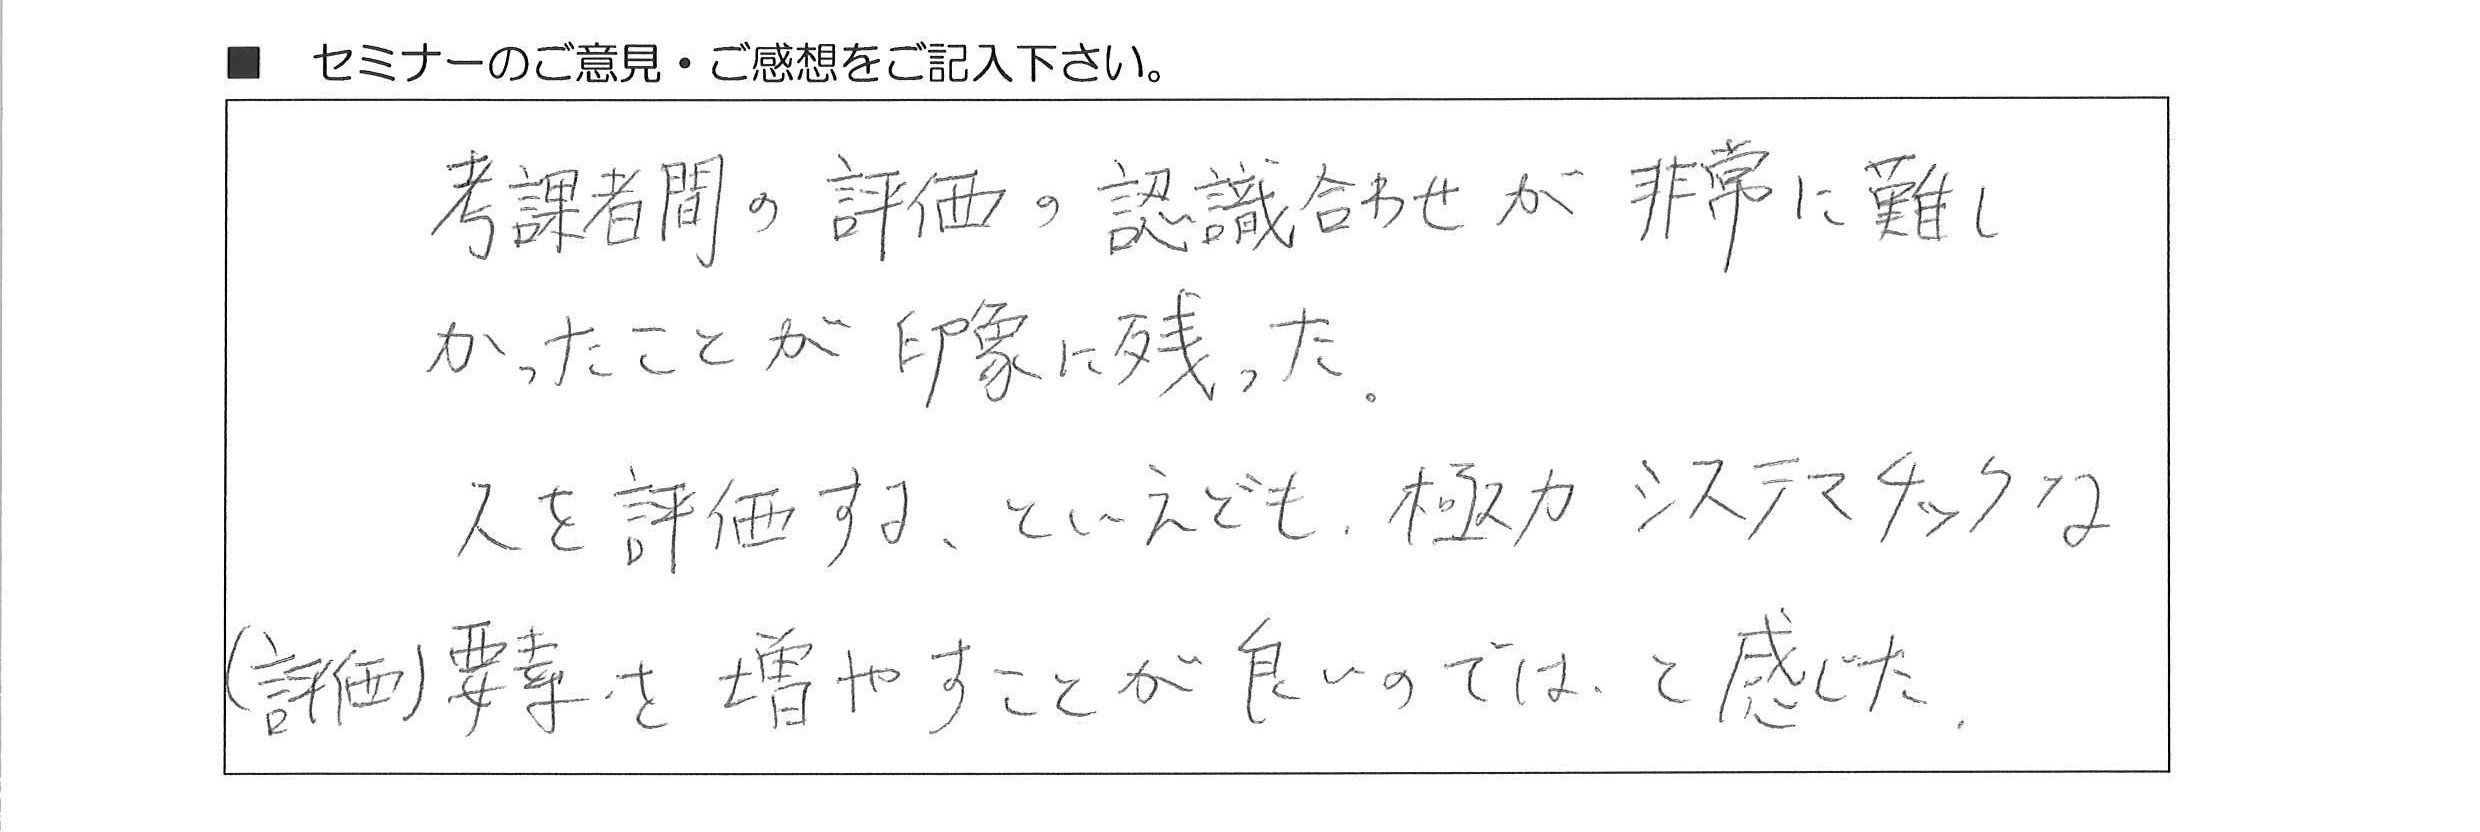 ■ セミナーのご意見・ご感想をご記入下さい。
考課者間の評価の認識合わせが非常に難し
かったことが印象に残った。
人を評価する、といえども、極力システマチックな
(評価)要素を増やすことが良いのでは、と感じた。